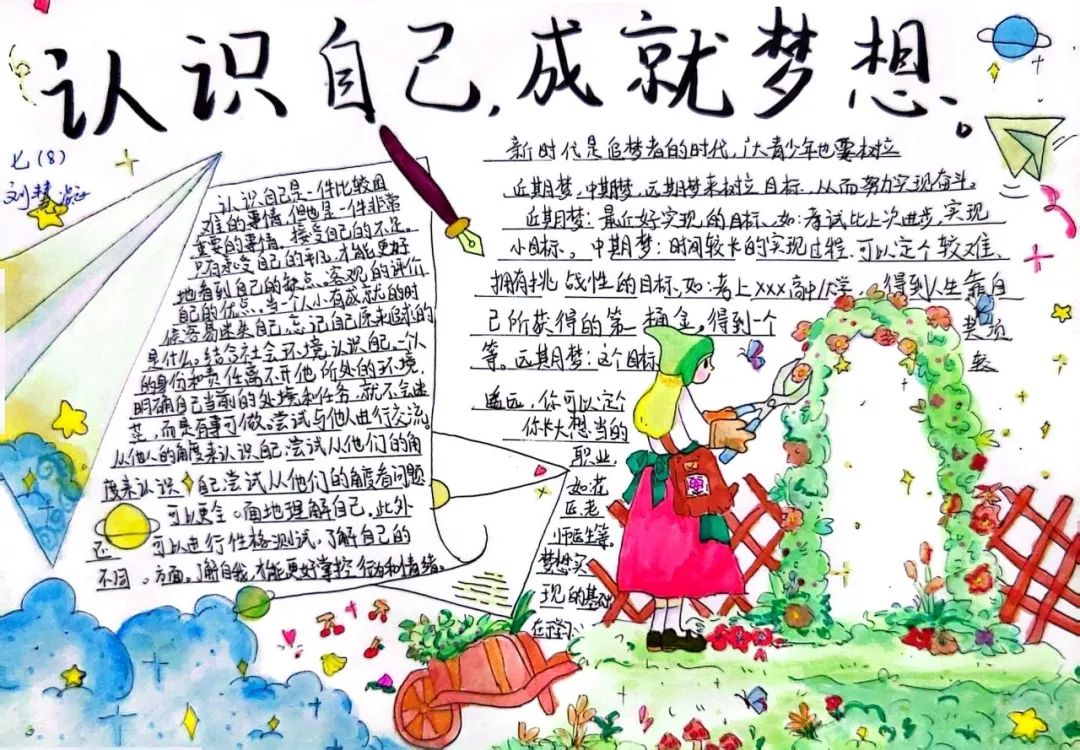 认识自己,成就梦想。
七(8)
刘梦
认识自己是一件比较困
难的事情,但也是一件非常
重要的事情。接受自己的不足。
只有承受自己的平凡,才能更好
地看到自己的缺点。客观的评价
自己的优点。当一个人小有成就的时
候容易迷失自己,忘记自己原来追求的
是什么。结合社会环境,认识自己,一个人
的身份和责任离不开他所处的环境,
明确自己当前的处境和任务,就不会迷
茫,而是有事可做。尝试与他人进行交流。
从他人的角度来认识自己:尝试从他们的角
度来认识自己尝试从他们的角度看问题
可以更全面地理解自己,此外
还可以进行性格测试,了解自己的
不同方面。了解自我,才能更好掌控行为和情绪。
新时代是追梦者的时代,广大青少年也要树立
近期梦,中期梦,远期梦来树立目标,从而努力实现奋斗。
近期梦:最近好实现的目标、如:考试比上次进步,实现
小目标。中期梦:时间较长的实现过程,可以定个较难、
拥有挑战性的目标、如:考上xxx高中/大学,得到人生靠自
己所获得的第一桶金。得到一个奖项
等。远期梦:这个目标较
遥远,你可以定个
你长大想当的
职业
如花
匠老
师医生等。
梦想实
现的基础
在学